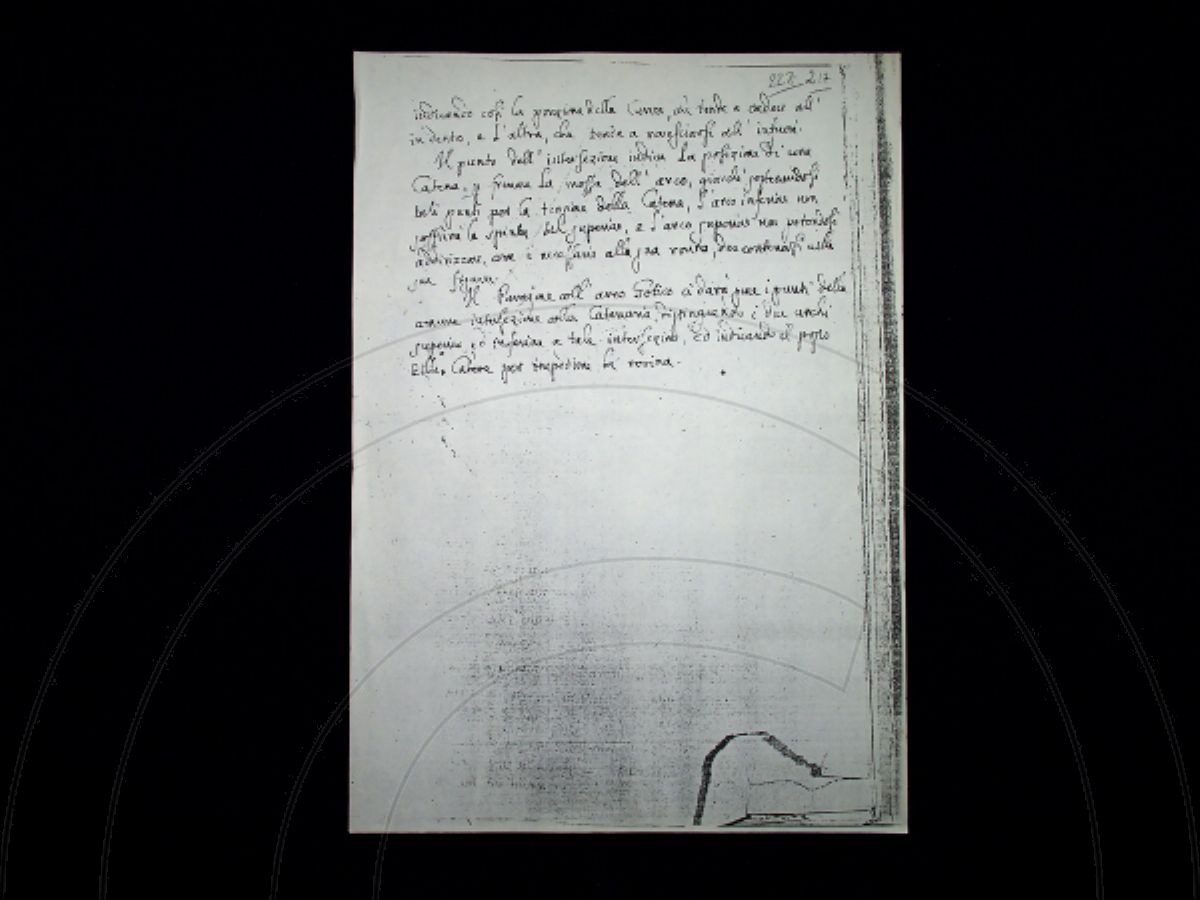 227 217
indicando così la porzione della Curva, che tende a cedere all'
in dentro, e l'altra, che tende a rovesciarsi all' infuori.
Il punto dell' intersezione indica la posizione di una
Catena, p frenare la mossa dell' arco, giacchè sostenendosi
tali punti per la tensione della Catena, l'arco inferior non
soffrirà la spinta del superior, e l'arco superior non potendosi
addirizzare, come è necessario alla sua rovina, dee contenersi nella
sua figura.
Il Paragone coll' arco Gotico ci darà pure i punti della
comune intersezione colla Catenaria, distinguendo i due archi
superior, ed inferior a tale intersezione, ed indicando il posto
della Catena per impedirne la rovina.